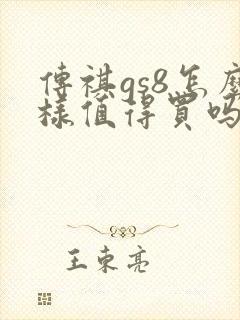 傳祺gs8怎麼
樣值得買嗎
王東亮